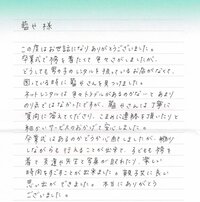 藍や 様
この度はお世話になりありがとうございました。
卒業式で袴を着たくて色々さがしましたが、
どうしても男の子のレンタルを扱っているお店がなくて、
困っている時に藍やさんを見つけました。
ネットレンタルは色々トラブルがあるのかなーとあまり
のり気ではなかったですが、藍やさんは丁寧に
質問に答えてくださり、こまめに連絡を頂いたりと
細かいサービスのおかげで安心しました。
卒業式はあるのかどうか心配しましたが、
しながらも行えることが出来て、子どもも袴を
着て友達や先生と写真が取れたり、楽しい
時間をすごすことが出来ました。親子共に良い
思い出ができました。本当にありがとう
ございました。